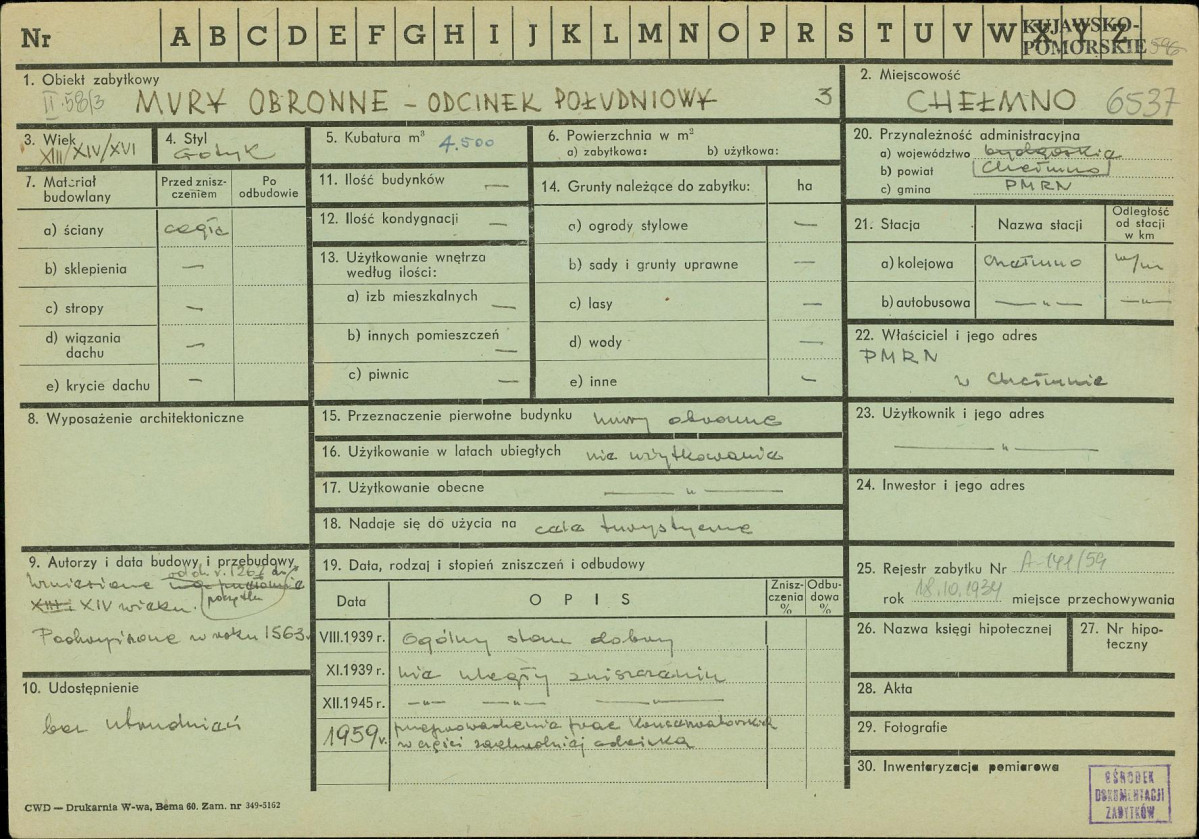 Nr A B C D E F G H I J K L M N O P R S T U V W X Y Z
KUJAWSKO-
POMORSKIE 596
1. Obiekt zabytkowy
II 58/3 MURY OBRONNE – ODCINEK POŁUDNIOWY 3
2. Miejscowość
CHEŁMNO 6537
3. Wiek
XIII/XIV/XVI
4. Styl
Gotyk
5. Kubatura m³ 4.500
6. Powierzchnia w m²
a) zabytkowa: b) użytkowa:
7. Materiał
budowlany
Przed znisz-
czeniem
Po
odbudowie
a) ściany cegła
b) sklepienia —
c) stropy —
d) wiązania
dachu —
e) krycie dachu —
8. Wyposażenie architektoniczne
9. Autorzy i data budowy i przebudowy
Wzniesione od ok. r. 1267 do
XIII i XIV wieku. początku
Podwyższone w roku 1563.
10. Udostępnienie
bez utrudnień
11. Ilość budynków —
12. Ilość kondygnacji —
13. Użytkowanie wnętrza
według ilości:
a) izb mieszkalnych —
b) innych pomieszczeń —
c) piwnic —
14. Grunty należące do zabytku: ha
a) ogrody stylowe —
b) sady i grunty uprawne —
c) lasy —
d) wody —
e) inne —
15. Przeznaczenie pierwotne budynku mury obronne
16. Użytkowanie w latach ubiegłych nie użytkowanie
17. Użytkowanie obecne — " —
18. Nadaje się do użycia na cele turystyczne
19. Data, rodzaj i stopień zniszczeń i odbudowy
Data OPIS
Znisz-
czenia
%
Odbu-
dowa
%
VIII.1939 r. Ogólny stan dobry
XI.1939 r. nie uległy zniszczeniu
XII.1945 r. — " — — " — — " —
1959 r. przeprowadzenie prac konserwatorskich
w części zachodniej odcinka
20. Przynależność administracyjna
a) województwo bydgoskie
b) powiat Chełmno
c) gmina PMRN
21. Stacja
Nazwa stacji
Odległość
od stacji
w km
a) kolejowa Chełmno w/m
b) autobusowa — " — — " —
22. Właściciel i jego adres
PMRN
w Chełmnie
23. Użytkownik i jego adres
— " —
24. Inwestor i jego adres
25. Rejestr zabytku Nr A-141/59
rok 18.10.1934 miejsce przechowywania
26. Nazwa księgi hipotecznej
27. Nr hipo-
teczny
28. Akta
29. Fotografie
30. Inwentaryzacja pomiarowa
OŚRODEK
DOKUMENTACJI
ZABYTKÓW
CWD — Drukarnia W-wa, Bema 60. Zam. nr 349-5162